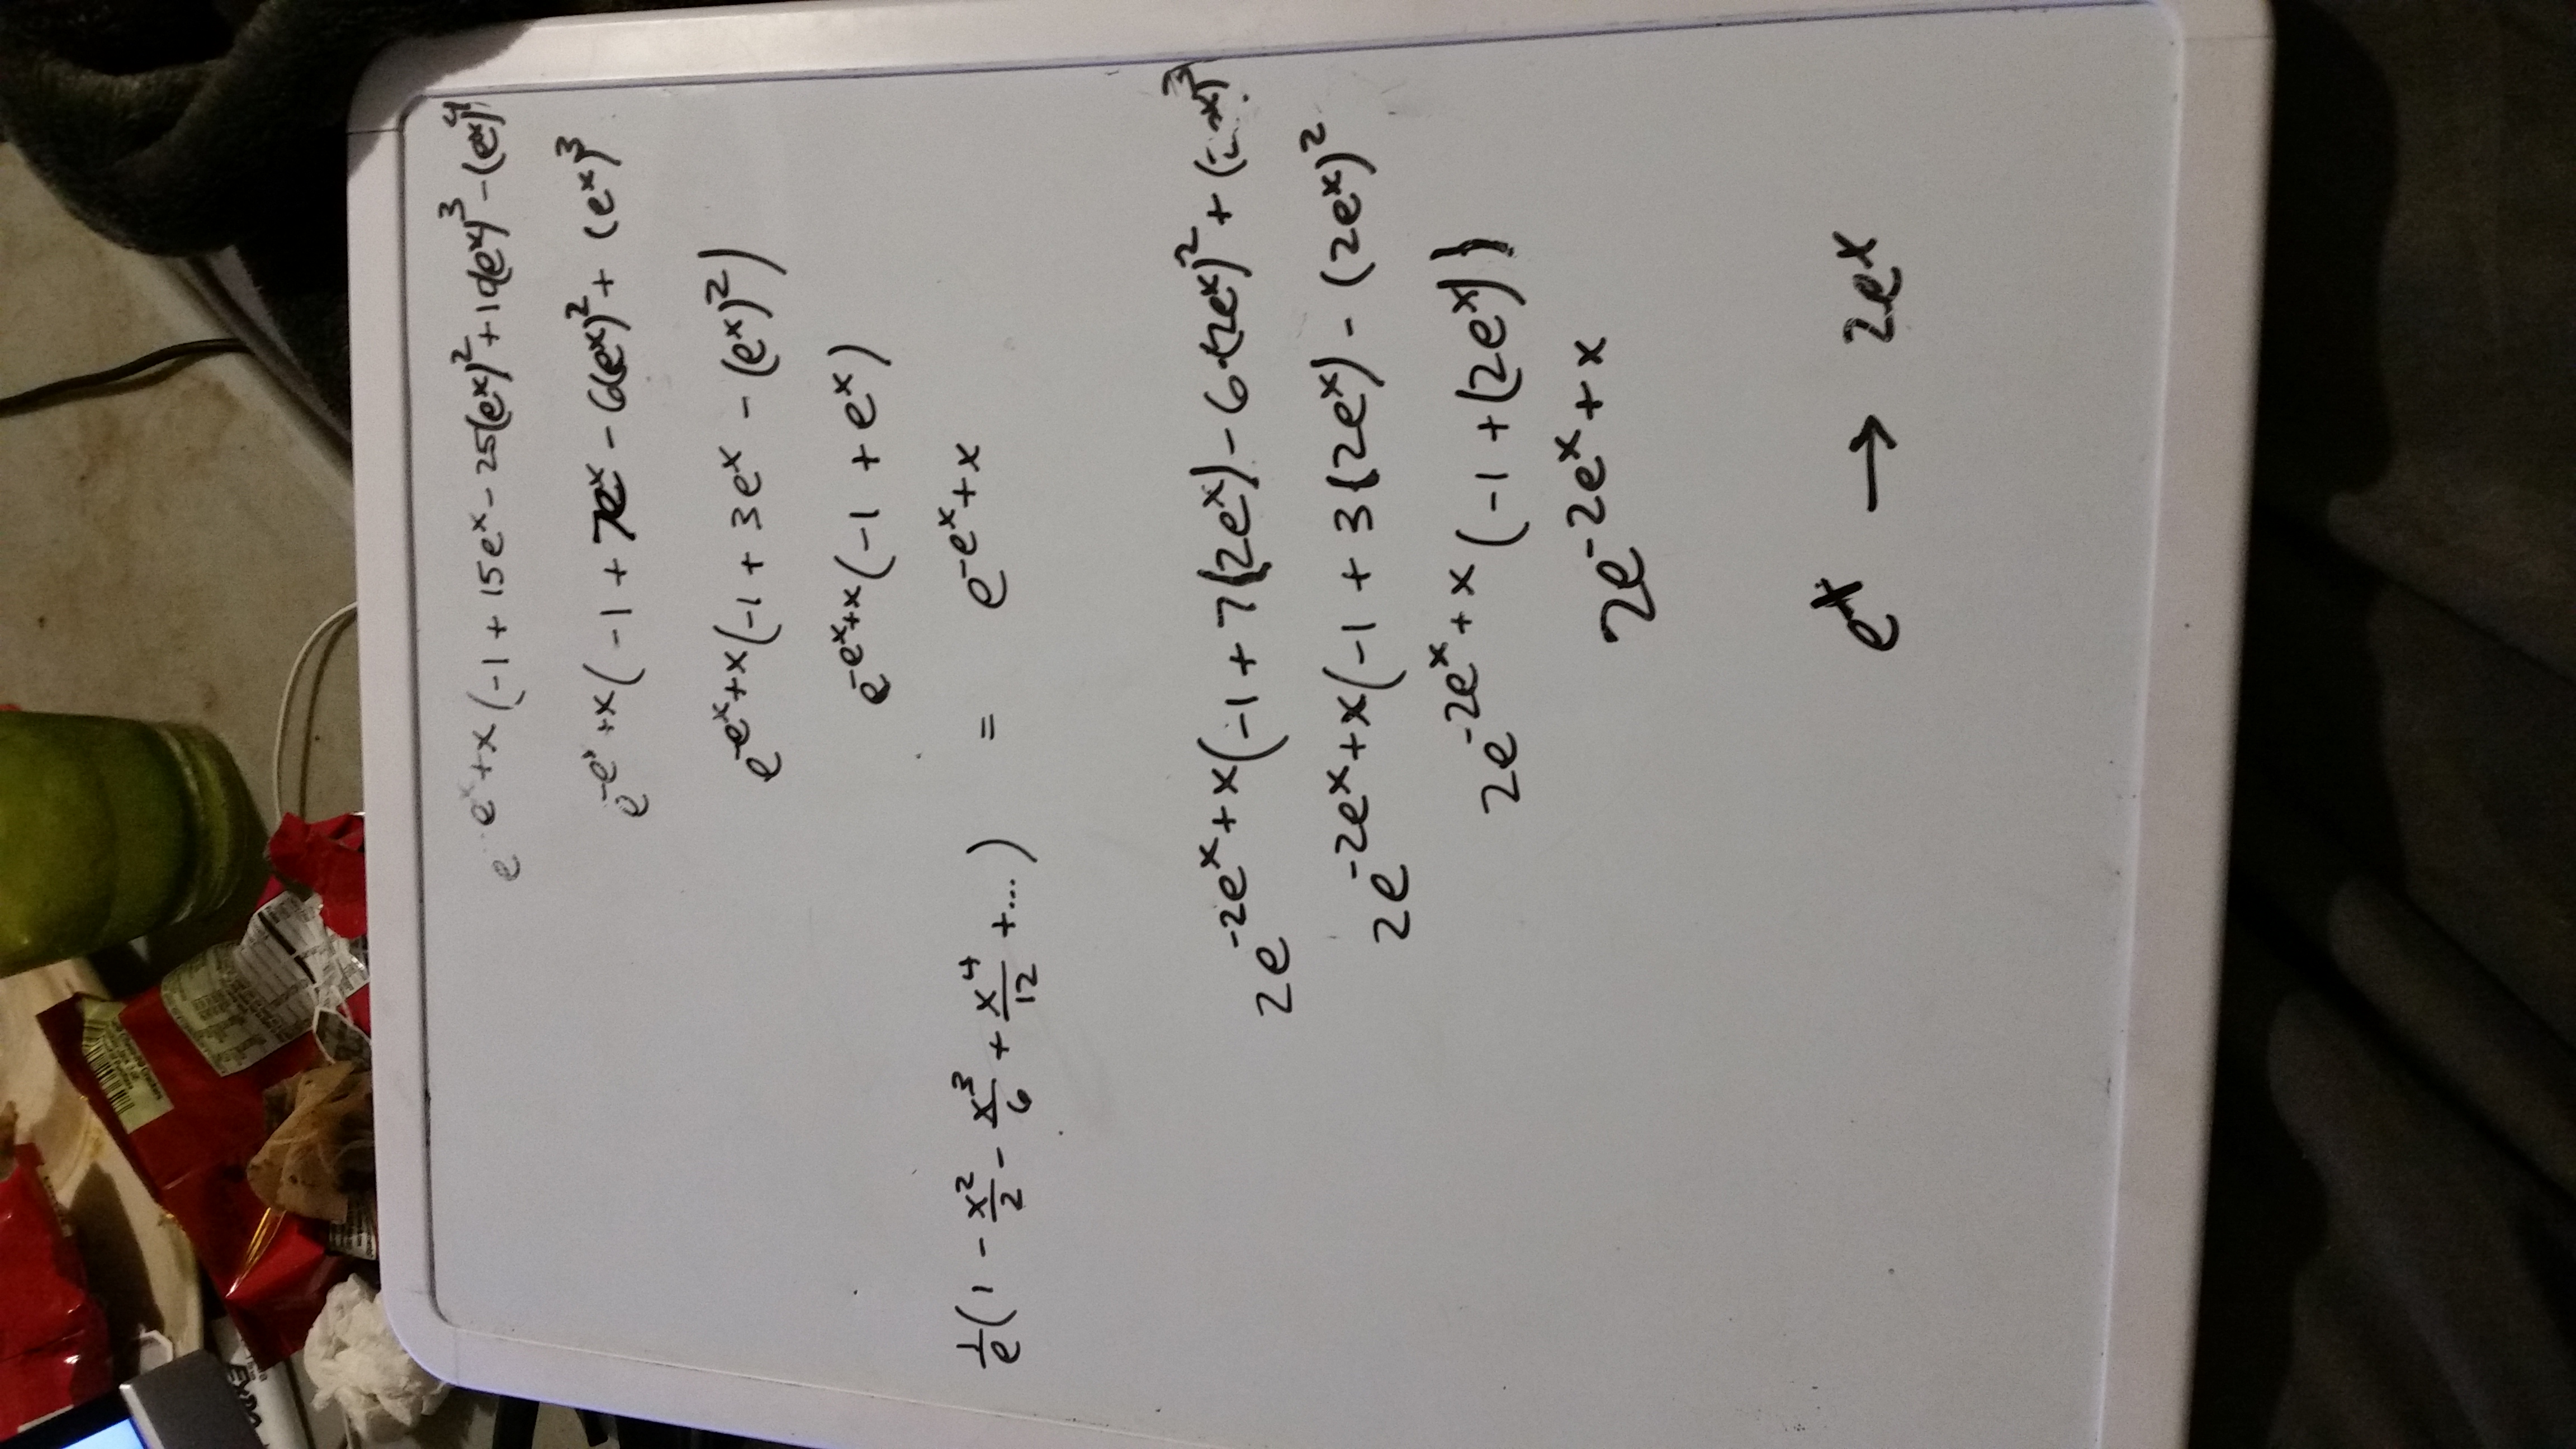 EXPO
e^{e^x+x}(-1 + 15e^x - 25(e^x)^2 + 10(e^x)^3 - (e^x)^4)
e^{-e^x+x}( -1 + 7e^x - 6(e^x)^2 + (e^x)^3
e^{-e^x+x}(-1 + 3e^x - (e^x)^2)
e^{-e^x+x}(-1 + e^x)
\frac{1}{e}(1 - \frac{x^2}{2} - \frac{x^3}{6} + \frac{x^4}{12} + ... ) = e^{-e^x+x}
2e^{-2e^x+x}(-1 + 7(2e^x) - 6·(2e^x)^2 + (2 x)^3
2e^{-2e^x+x}(-1 + 3(2e^x) - (2e^x)^2
2e^{-2e^x+x}(-1 + (2e^x))
2e^{-2e^x+x}
e^x → 2e^x